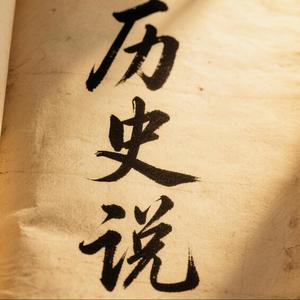 历史说